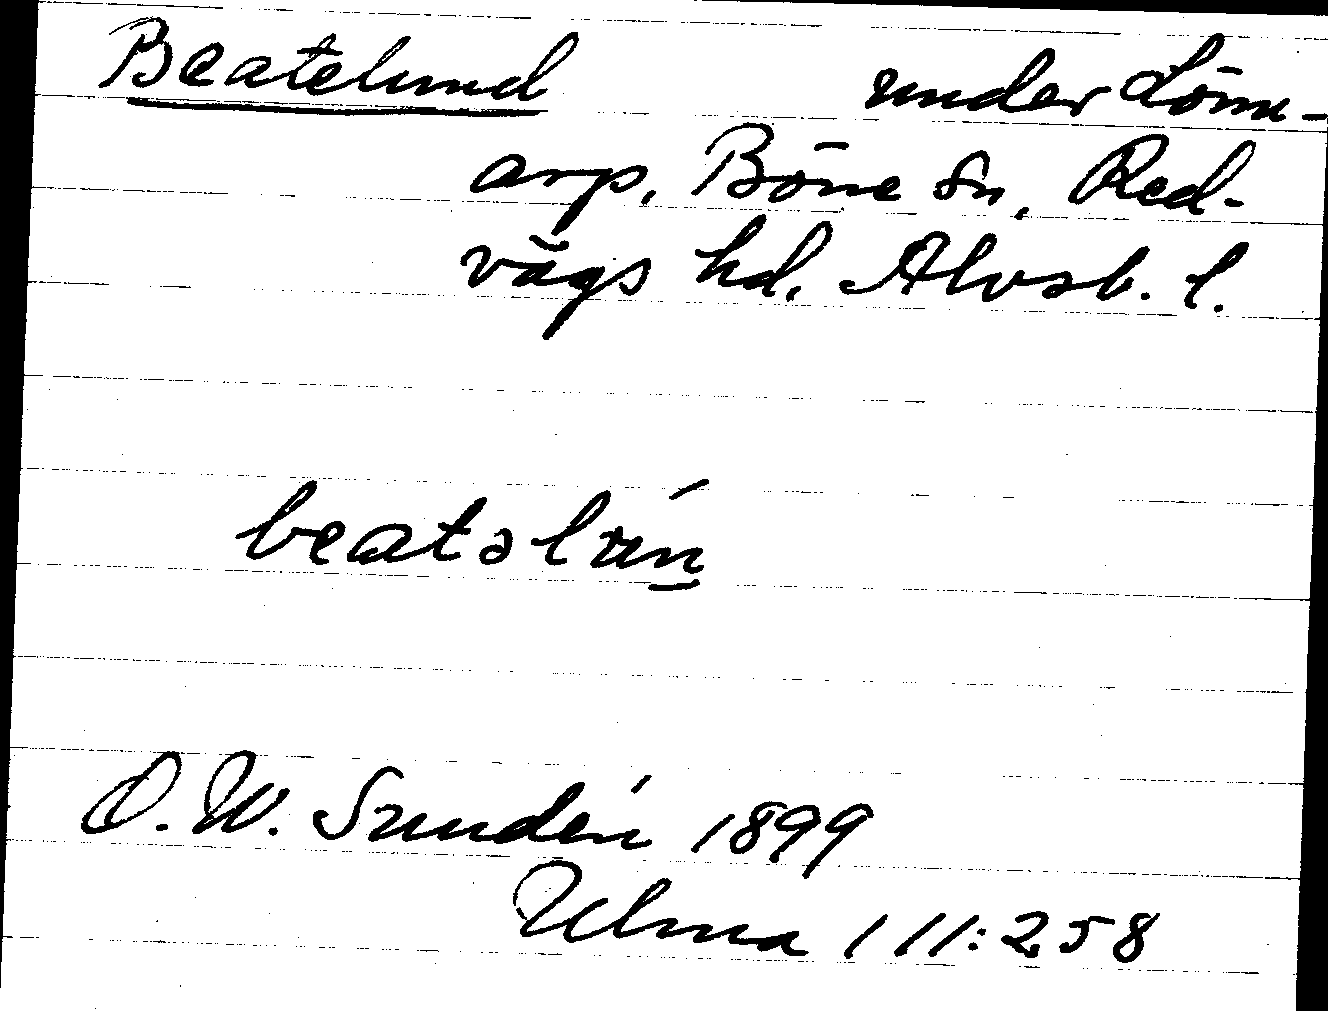 Beatelund under Lönn-
arp, Böne sn, Red-
vägs hd, Älvsb. l.
O. W. Sundén 1899
Ulma 111:258